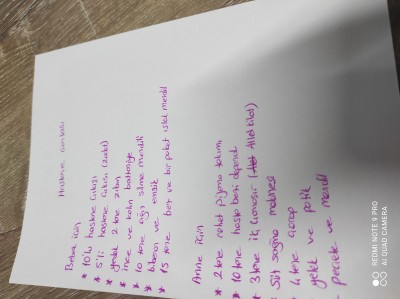 Hastane çantası
Bebek için
* 10'lu hastane çıkışı
* 5'li hastane çıkışı (zıbın)
* yedek 2 tane zıbın
* ince ve kalın battaniye
* 10 tane ağız silme mendili
* biberon ve emzik
* 15 tane bez ve bir paket ıslak mendil
Anne için
* 2 tane rahat pijama takımı
* 10 tane hasta bezi depend
* 3 tane iç çamaşır
* Süt sağma makinesi
* 4 tane çorap
yelek ve patik
peçete ve mendil
REDMI NOTE 9 PRO
AI QUAD CAMERA